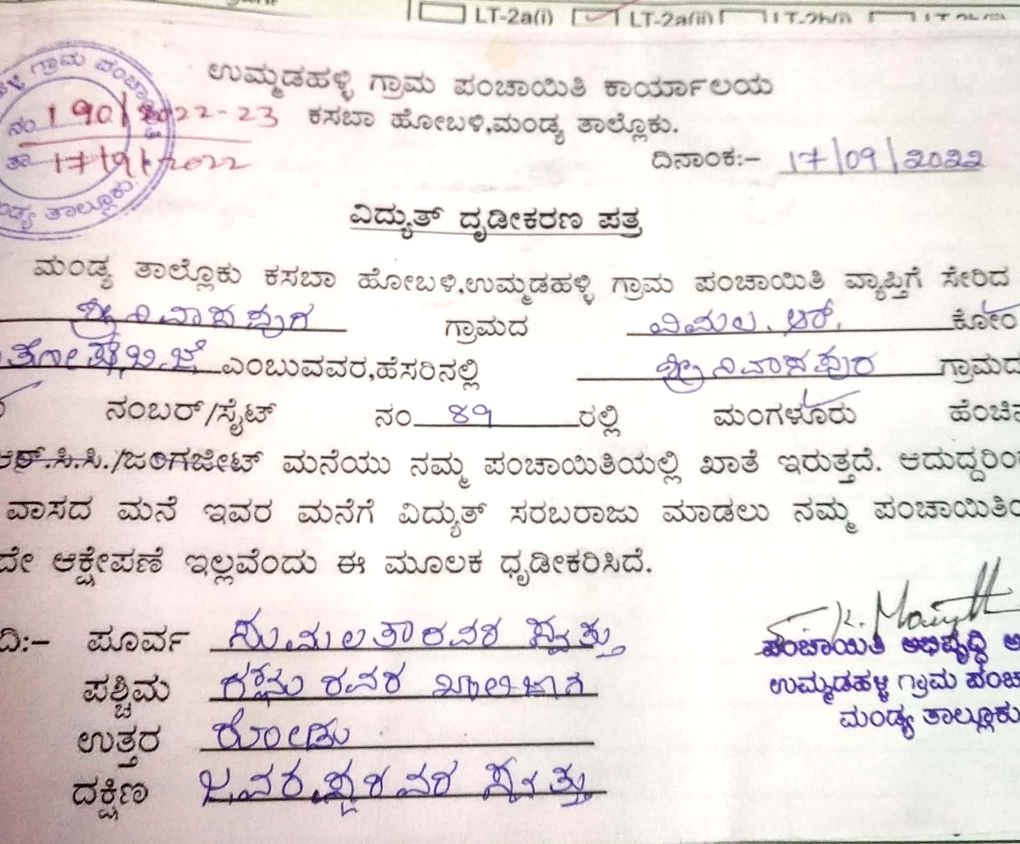 LT-2a(i) LT-2a(ii)
ಉಮ್ಮಡಹಳ್ಳಿ ಗ್ರಾಮ ಪಂಚಾಯಿತಿ ಕಾರ್ಯಾಲಯ
ನಂ 190/2022-23 ಕಸಬಾ ಹೋಬಳಿ,ಮಂಡ್ಯ ತಾಲ್ಲೊಕು.
ತಾ 17/9/2022 ದಿನಾಂಕ:- 17/09/2022
ಮಂಡ್ಯ ತಾಲ್ಲೂಕು.
ವಿದ್ಯುತ್ ದೃಡೀಕರಣ ಪತ್ರ
ಮಂಡ್ಯ ತಾಲ್ಲೊಕು ಕಸಬಾ ಹೋಬಳಿ,ಉಮ್ಮಡಹಳ್ಳಿ ಗ್ರಾಮ ಪಂಚಾಯಿತಿ ವ್ಯಾಪ್ತಿಗೆ ಸೇರಿದ
ಶ್ರೀನಿವಾಸಪುರ ಗ್ರಾಮದ ವಿಮಲ. ಆರ್. ಕೋಂ
ಎಂಬುವವರ,ಹೆಸರಿನಲ್ಲಿ ಶ್ರೀನಿವಾಸಪುರ ಗ್ರಾಮದ
ನಂಬರ್/ಸೈಟ್ ನಂ 89 ರಲ್ಲಿ ಮಂಗಳೂರು ಹೆಂಚಿನ
ಆರ್.ಸಿ.ಸಿ./ಜಂಗಜೀಟ್ ಮನೆಯು ನಮ್ಮ ಪಂಚಾಯಿತಿಯಲ್ಲಿ ಖಾತೆ ಇರುತ್ತದೆ. ಆದುದ್ದರಿಂದ
ವಾಸದ ಮನೆ ಇವರ ಮನೆಗೆ ವಿದ್ಯುತ್ ಸರಬರಾಜು ಮಾಡಲು ನಮ್ಮ ಪಂಚಾಯಿತಿಯಿಂ
ದೇ ಆಕ್ಷೇಪಣೆ ಇಲ್ಲವೆಂದು ಈ ಮೂಲಕ ಧೃಡೀಕರಿಸಿದೆ.
ದಿ:- ಪೂರ್ವ ಸುಮಲತಾರವರ ಸ್ವತ್ತು
ಪಶ್ಚಿಮ ರವರ ಖಾಲಿಜಾಗ
ಉತ್ತರ ರೋಡು
ದಕ್ಷಿಣ ಸ್ವತ್ತು
ಪಂಚಾಯಿತಿ ಅಭಿವೃದ್ಧಿ ಅ
ಉಮ್ಮಡಹಳ್ಳಿ ಗ್ರಾಮ ಪಂಚಾ
ಮಂಡ್ಯ ತಾಲ್ಲೂಕು